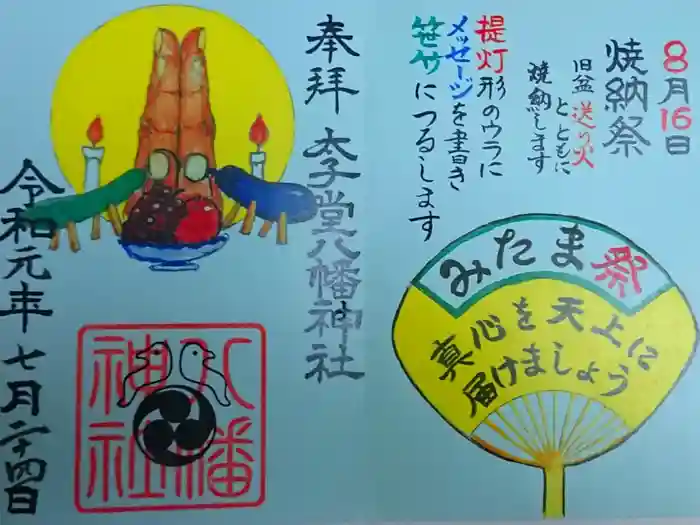 8月16日
焼納祭
旧盆 送り火
とともに
焼納します
提灯形のウラに
メッセージを書き
笹竹につるします
みたま祭
真心を天上に
届けましょう
奉拝 太子堂八幡神社
八幡
神社
令和元年七月二十四日